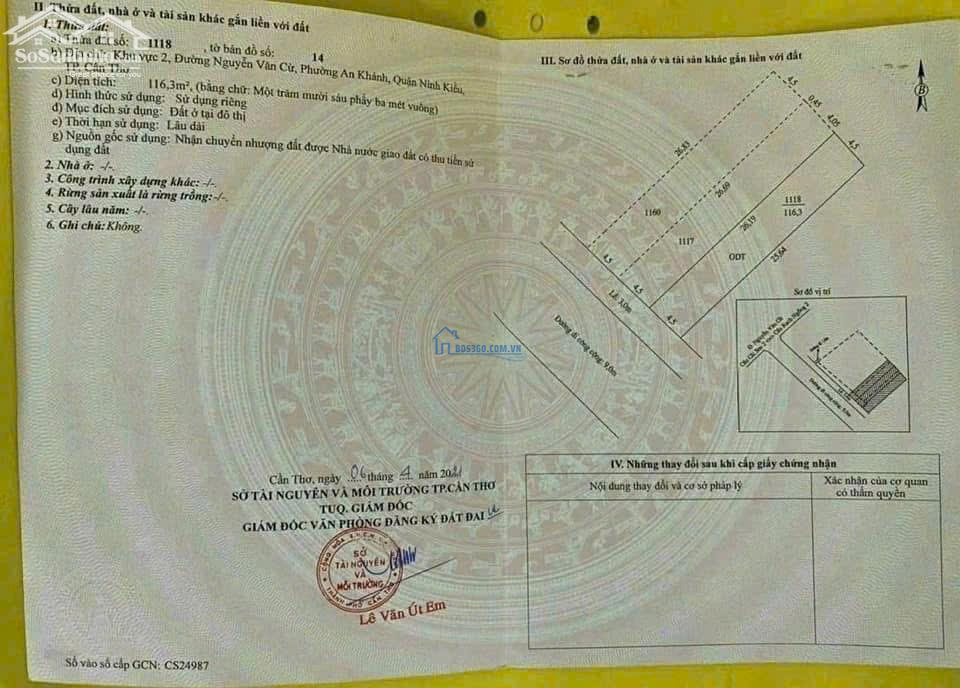 II. Thửa đất, nhà ở và tài sản khác gắn liền với đất
1. Thửa đất:
a) Thửa đất số: 1118 , tờ bản đồ số: 14
b) Địa chỉ: Khu vực 2, Đường Nguyễn Văn Cừ, Phường An Khánh, Quận Ninh Kiều,
TP. Cần Thơ
c) Diện tích: 116,3m², (bằng chữ: Một trăm mười sáu phẩy ba mét vuông)
d) Hình thức sử dụng: Sử dụng riêng
đ) Mục đích sử dụng: Đất ở tại đô thị
e) Thời hạn sử dụng: Lâu dài
g) Nguồn gốc sử dụng: Nhận chuyển nhượng đất được Nhà nước giao đất có thu tiền sử
dụng đất
2. Nhà ở: -/-.
3. Công trình xây dựng khác: -/-.
4. Rừng sản xuất là rừng trồng: -/-.
5. Cây lâu năm: -/-.
6. Ghi chú: Không.
Cần Thơ, ngày 06 tháng 4 năm 2021
SỞ TÀI NGUYÊN VÀ MÔI TRƯỜNG TP.CẦN THƠ
TUQ. GIÁM ĐỐC
GIÁM ĐỐC VĂN PHÒNG ĐĂNG KÝ ĐẤT ĐAI
SỞ
TÀI NGUYÊN
VÀ
MÔI TRƯỜNG
THÀNH PHỐ CẦN THƠ
Lê Văn Út Em
Số vào sổ cấp GCN: CS24987
III. Sơ đồ thửa đất, nhà ở và tài sản khác gắn liền với đất
B
4,5
0,45
4,05
4,5
26,83
26,69
26,19
25,64
1160
1117
1118
116,3
ODT
4,5
4,5
4,5
Lề 3,0m
Đường đi công cộng: 9,0m
Sơ đồ vị trí
Đ. Nguyễn Văn Cừ
IV. Những thay đổi sau khi cấp giấy chứng nhận
Nội dung thay đổi và cơ sở pháp lý
Xác nhận của cơ quan
có thẩm quyền
BDS360.COM.VN